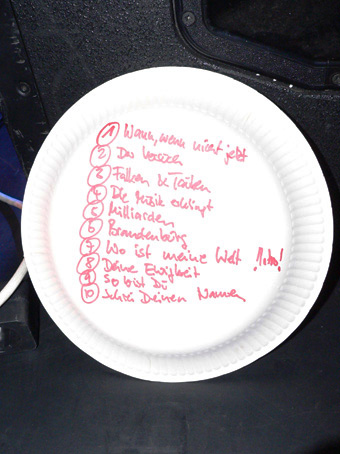 1 Wann, wenn nicht jetzt
2 Das Versteck
3 Falken & Tauben
4 Die Musik erklingt
5 Milliarden
6 Brandenburg
7 Wo ist meine Welt Intro!
8 Deine Ewigkeit
9 So bist Du
10 Schrei Deinen Namen